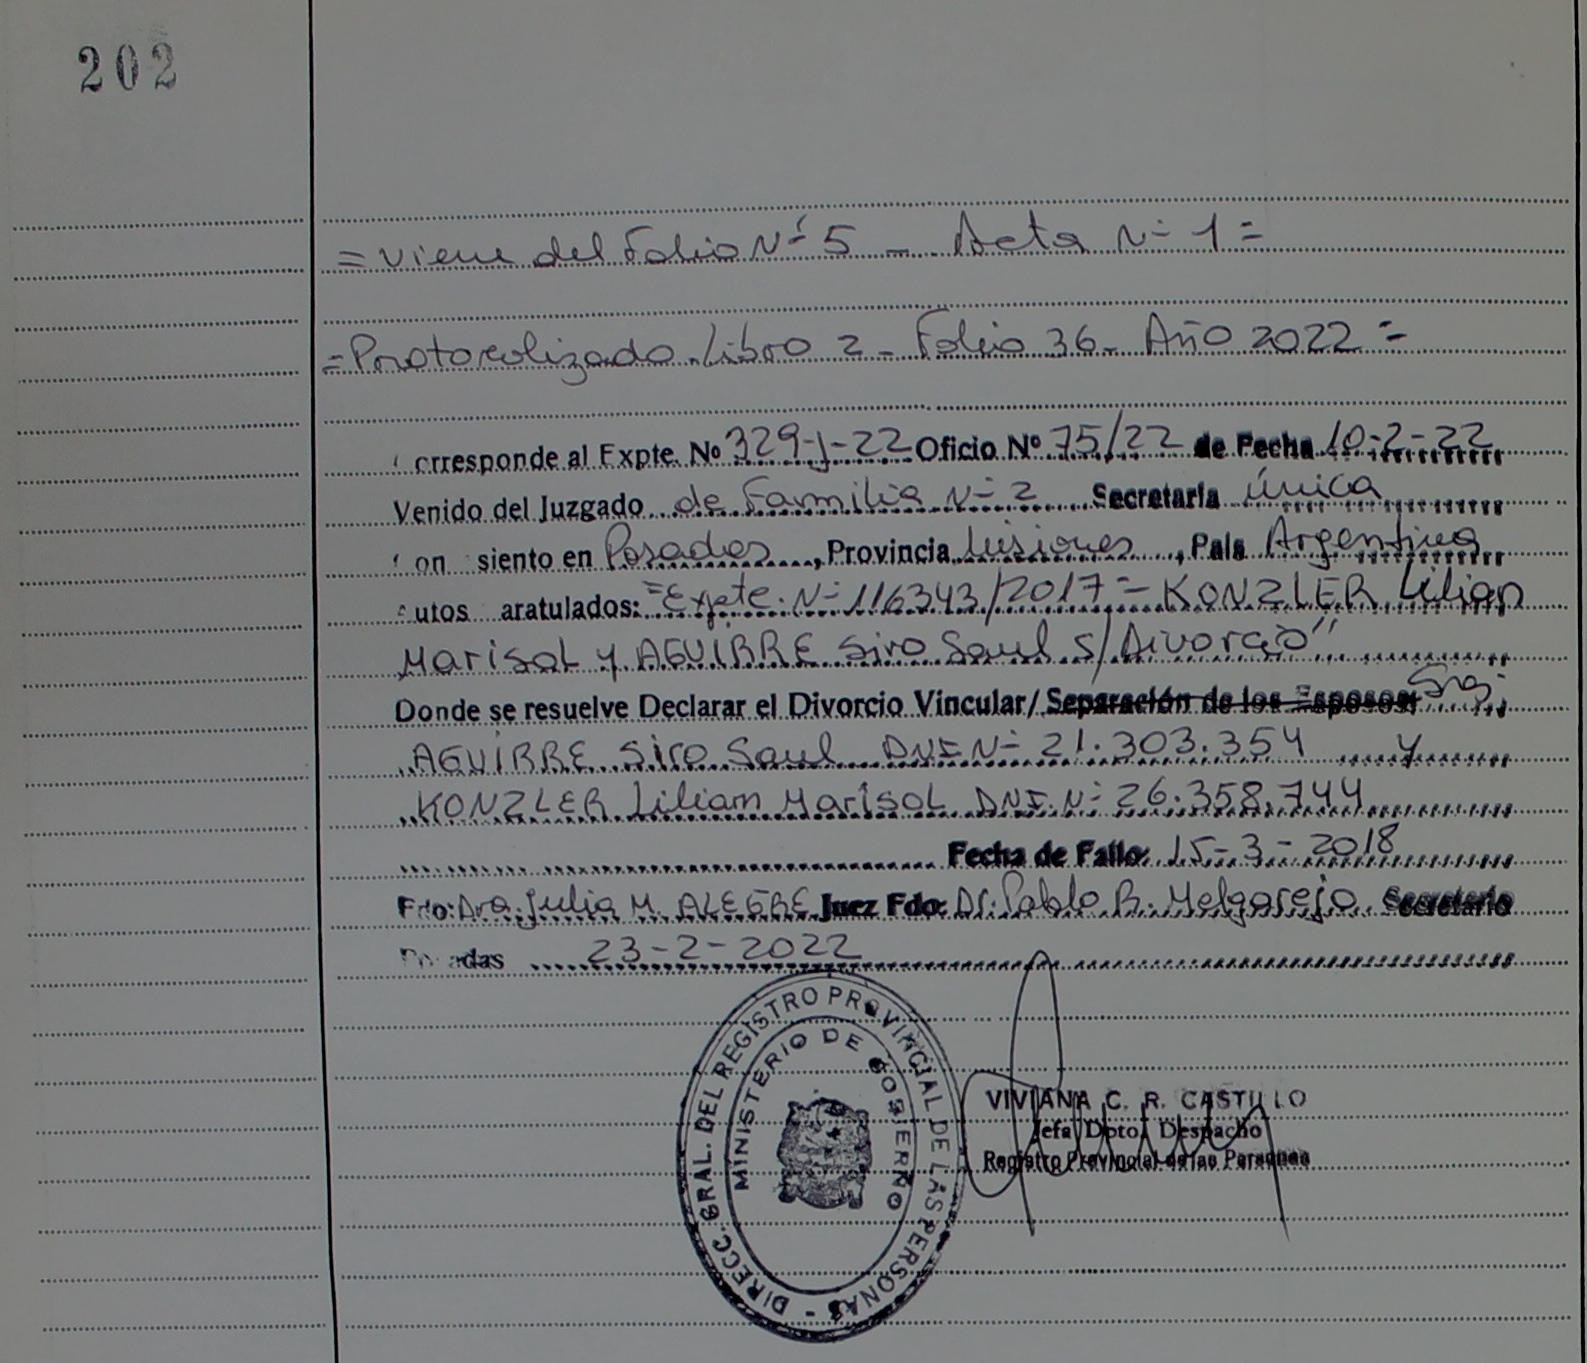 202
= Viene del Folio Nº 5 - Acta Nº 1 =
= Protocolizado Libro 2 - Folio 36 - Año 2022 =
orresponde al Expte. Nº 329-J-22 Oficio Nº 75/22 de Fecha 10-2-22
Venido del Juzgado de Familia Nº 2 Secretaría única
on siento en Posadas, Provincia Misiones, País Argentina
utos aratulados: "Expte. Nº 116343/2017 - KONZLER Lilian
Marisol y AGUIRRE Siro Saul S/Divorcio"
Donde se resuelve Declarar el Divorcio Vincular/ Separación de los Esposos:
AGUIRRE Siro Saul DNI Nº 21.303.354 y
KONZLER Liliam Marisol DNI. Nº 26.358.744
Fecha de Fallo: 15-3-2018
Fdo: Dra. Julia M. ALEGRE Juez Fdo: Dr. Pablo R. Melgarejo Secretario
adas 23-2-2022
DIRECC. GRAL. DEL REGISTRO PROVINCIAL DE LAS PERSONAS -
MINISTERIO DE GOBIERNO
VIVIANA C. R. CASTILLO
Jefa Dpto. Despacho
Registro Provincial de las Personas